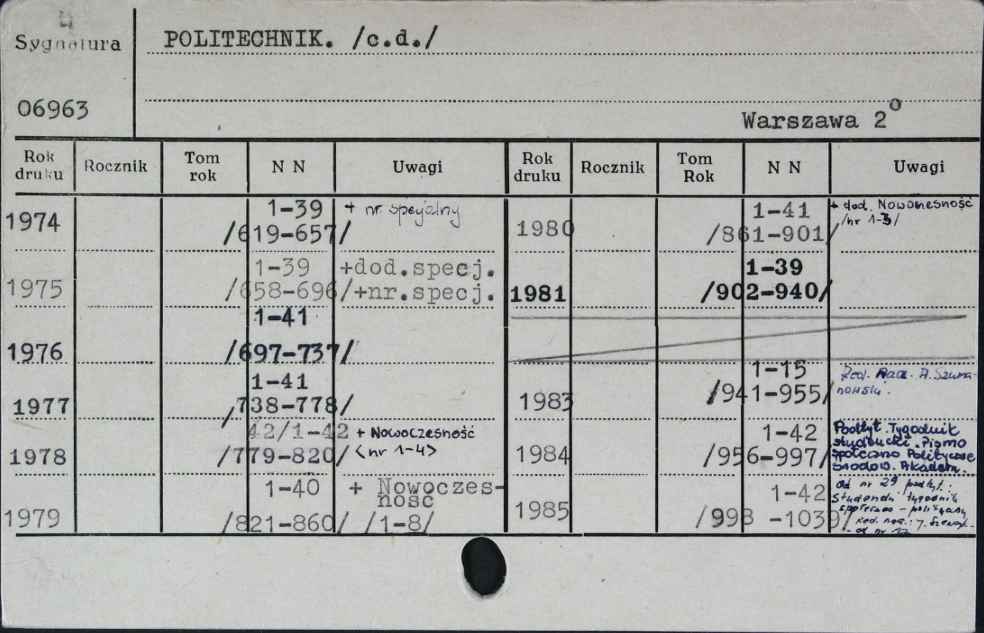 4
Sygnatura
POLITECHNIK. /c.d./
06963
Warszawa 2°
Rok druku Rocznik Tom rok N N Uwagi
1974 1-39 + nr specjalny
/619-657/
1975 1-39 +dod.specj.
/658-696/ +nr.specj.
1976 1-41
/697-737/
1977 1-41
/738-778/
1978 42/1-42 + Nowoczesność
/779-820/ <nr 1-4>
1979 1-40 + Nowoczes-
ność
/821-860/ /1-8/
Rok druku Rocznik Tom Rok N N Uwagi
1980 1-41 + dod. Nowoczesność
/861-901/ /nr 1-3/
1981 1-39
/902-940/
1983 1-15 Red. Nacz. A. Szyma-
/941-955/ nowski.
1984 1-42 Podtyt. Tygodnik
studencki. Pismo
/956-997/ Społeczno Polityczne
Środow. Akadem.
1985 1-42 od nr 29 podtyt.:
studencki tygodnik
/998 -1039/ społeczno - polityczny
Red. nacz.: J.
- od nr 12